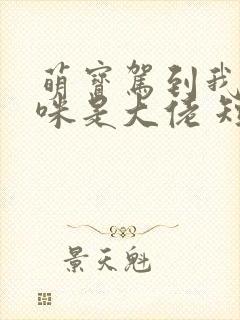 萌宝驾到我
咪是大佬短
景天魁